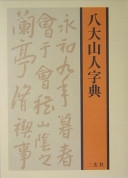 八大山人字典
二玄社
永和九年暮春
會于會稽山陰之
蘭亭脩禊事